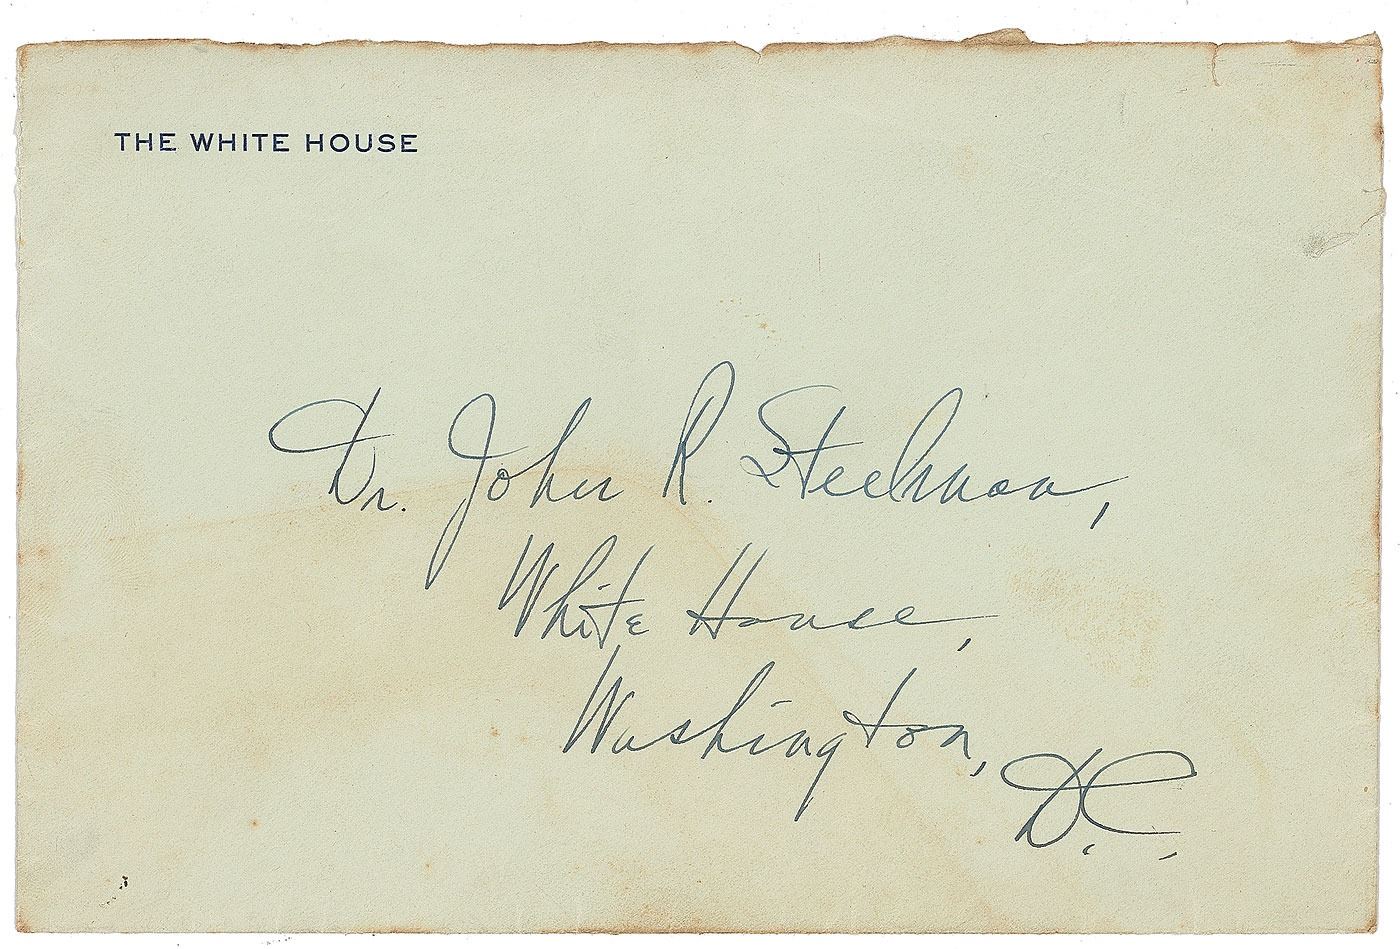 THE WHITE HOUSE
Dr. John R. Steelman,
White House,
Washington,
D.C.,